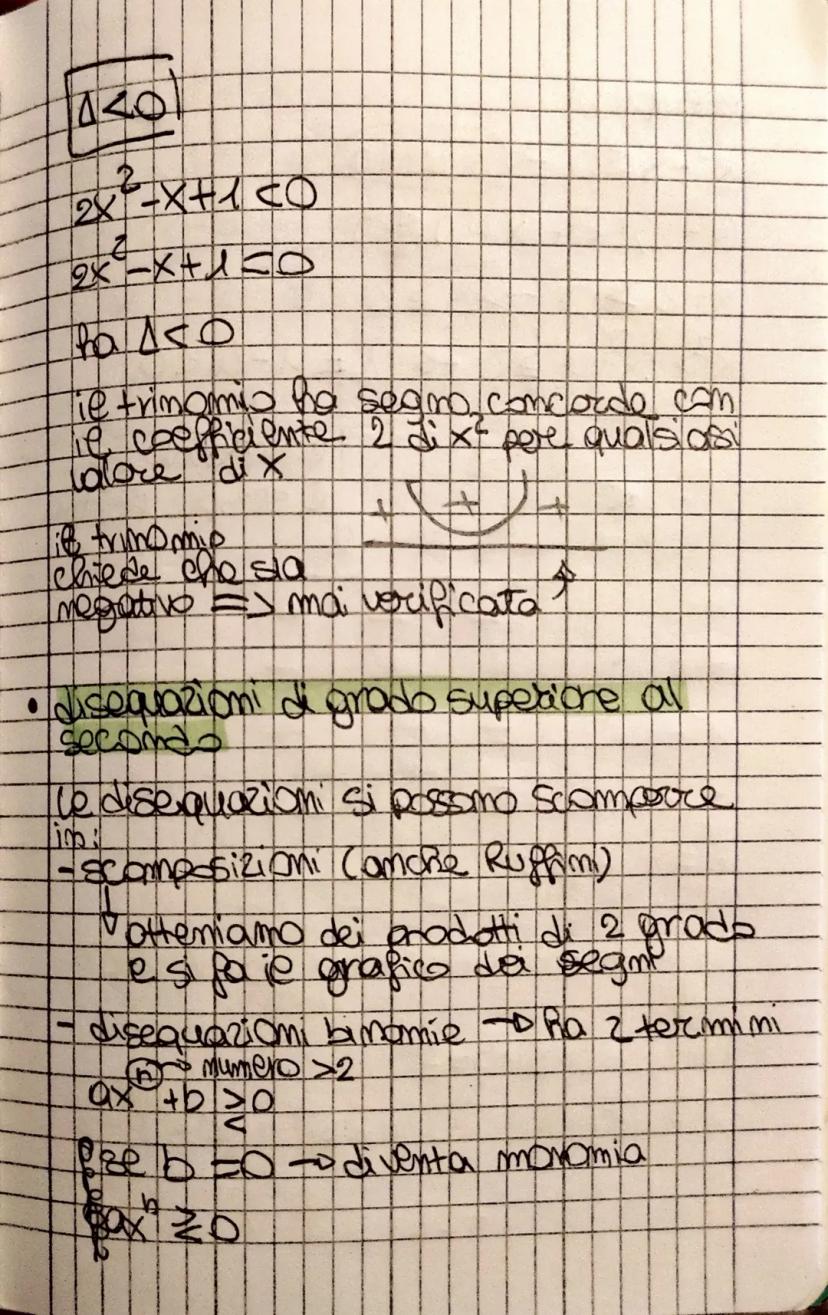 Δ<0
2x²-x+1<0
2x²-x+1=0
ha Δ<0
il trinomio ha segno concorde con
il coefficiente 2 di x² per qualsiasi
valore di x
+ + +
il trinomio
chiede che sia
negativo => mai verificata
• disequazioni di grado superiore al
secondo
le disequazioni si possono scomporre
in:
- scomposizioni (anche Ruffini)
otteniamo dei prodotti di 2 grado
e si fa il grafico dei segni
- disequazioni binomie → ha 2 termini
n → numero >2
axⁿ+b ≷ 0
se b=0 → diventa monomia
axⁿ ≷ 0